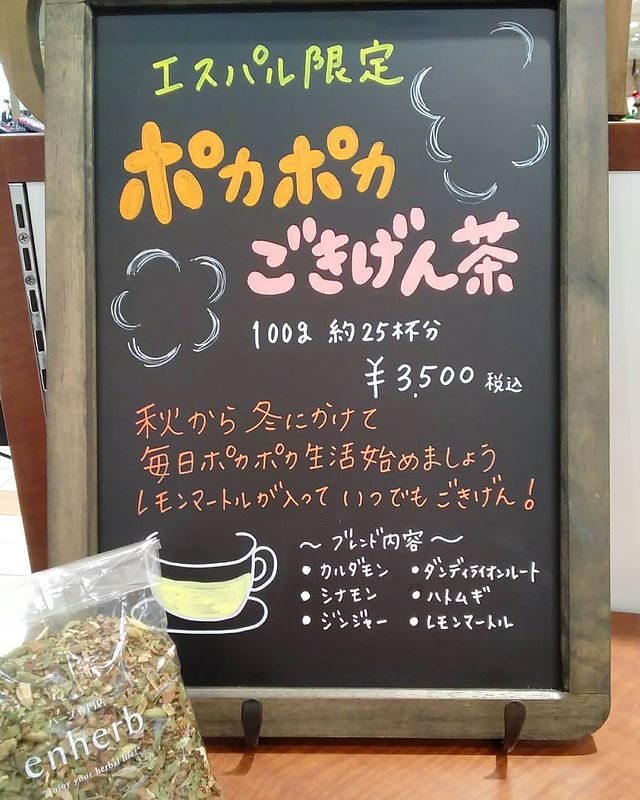 エスパル限定
ポカポカ
ごきげん茶
100g 約25杯分
¥3,500 税込
秋から冬にかけて
毎日ポカポカ生活始めましょう
レモンマートルが入って いつでも ごきげん!
～ ブレンド内容 ～
• カルダモン • ダンディライオンルート
• シナモン • ハトムギ
• ジンジャー • レモンマートル
ハーブ専門店
enherb
enjoy your herbal life!